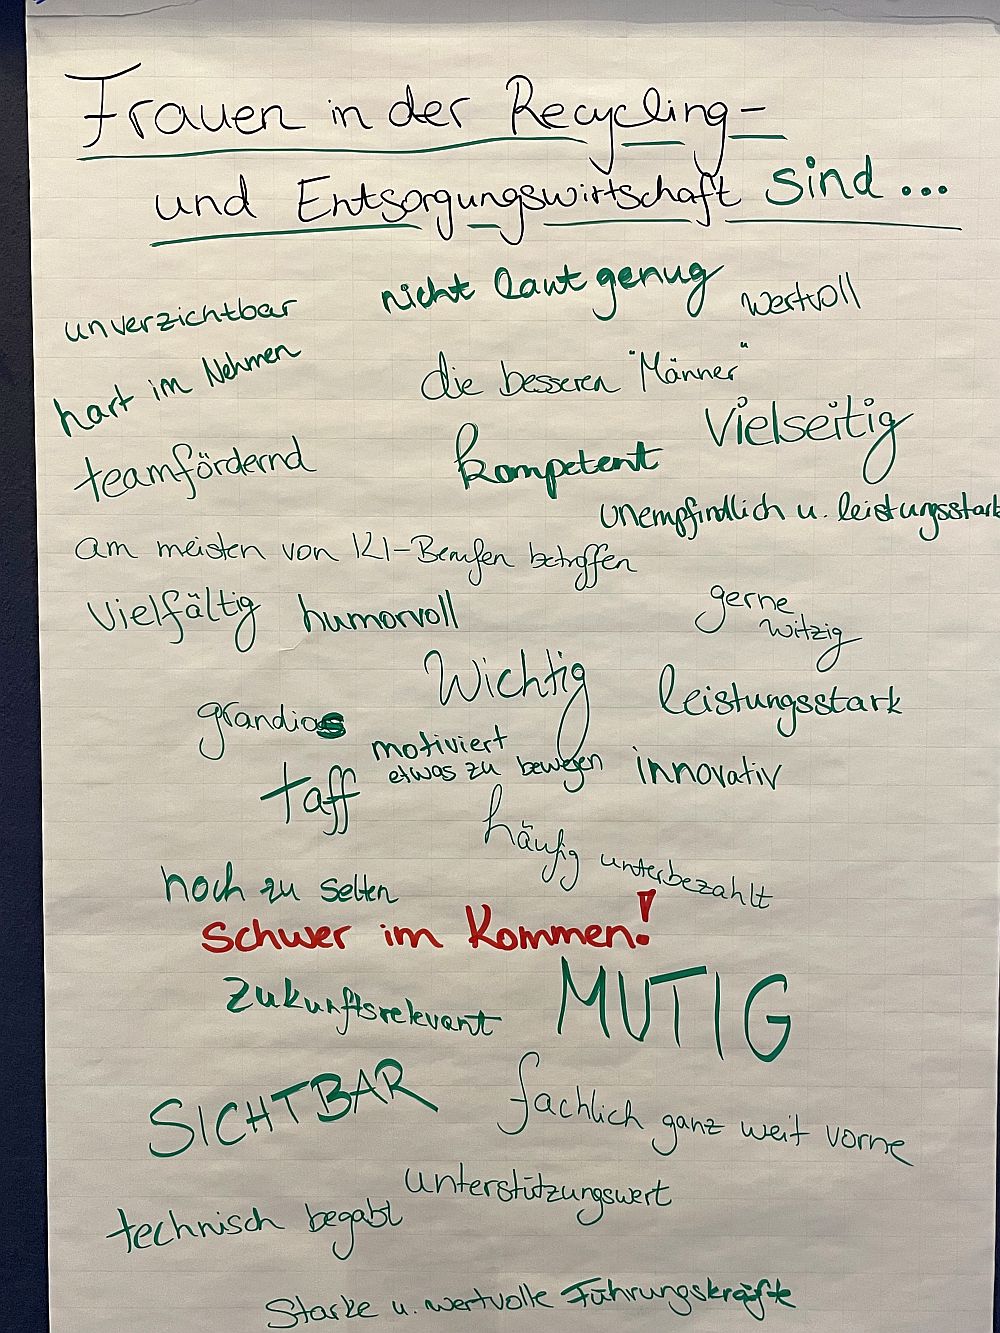 Frauen in der Recycling-
und Entsorgungswirtschaft sind...
nicht laut genug
wertvoll
unverzichtbar
hart im Nehmen
die besseren "Männer"
vielseitig
teamfördernd
kompetent
unempfindlich u. leistungsstark
am meisten von KI-Berufen betroffen
vielfältig
humorvoll
gerne
witzig
Wichtig
leistungsstark
grandios
motiviert
etwas zu bewegen
innovativ
taff
häufig unterbezahlt
noch zu selten
Schwer im Kommen!
zukunftsrelevant
MUTIG
SICHTBAR
fachlich ganz weit vorne
unterstützungswert
technisch begabt
Starke u. wertvolle Führungskräfte